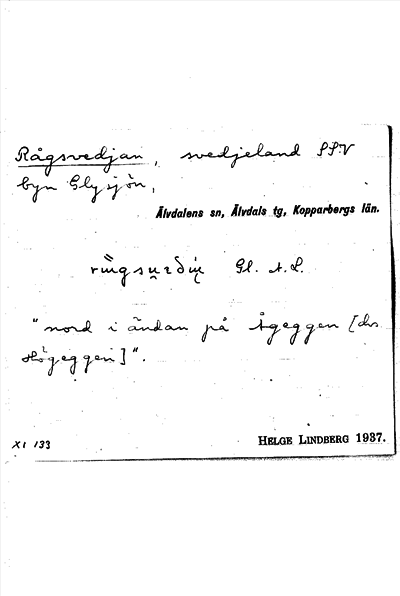 Rågsvedjan, svedjeland SSV
byn Glysjön,
Älvdalens sn, Älvdals tg, Kopparbergs län.
Gl. A. L.
"nord i ändan på Ågeggen [dvs
Högeggen]".
XI 133 HELGE LINDBERG 1937.